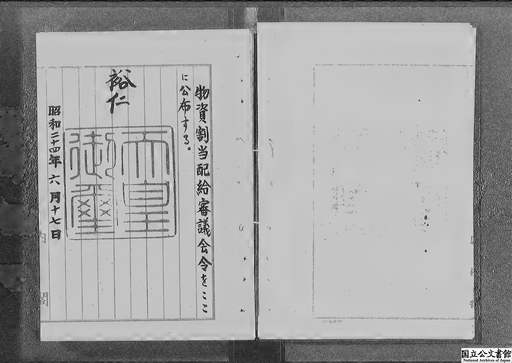 物資割当配給審議会令をここ
に公布する。
裕仁
天皇
御璽
昭和二十四年六月十七日
国立公文書館
National Archives of Japan